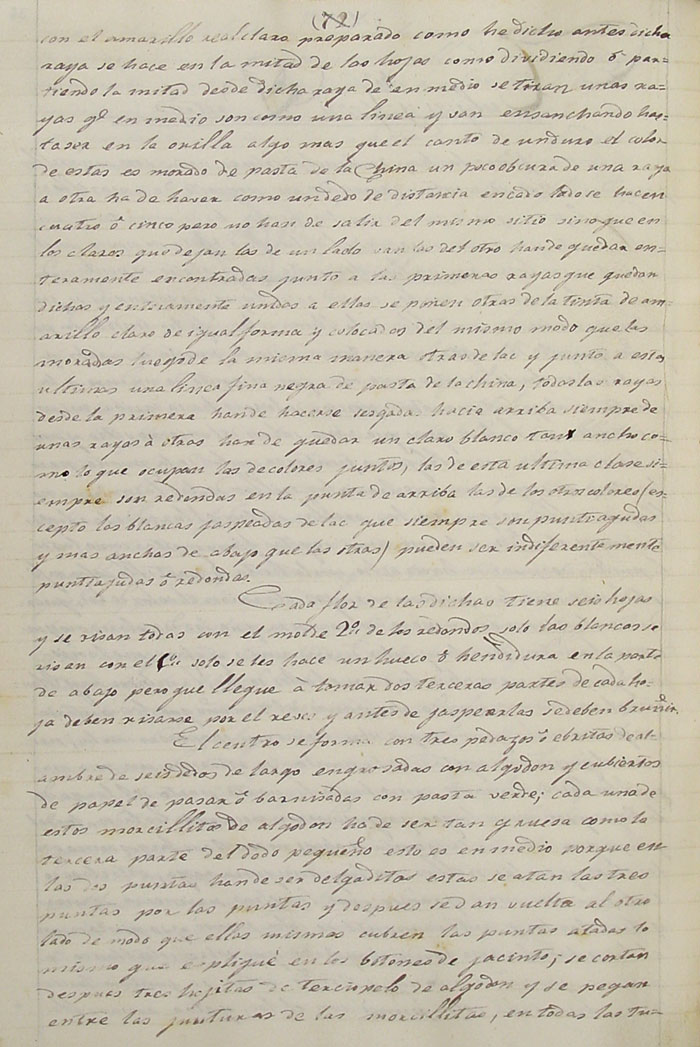 (72)
con el amarillo real claro preparado como he dicho antes dicha
raya se hace en la mitad de las hojas como dividiendo ó par-
tiendo la mitad desde dicha raya de en medio se tiran unas ra-
yas qe en medio son como una linea y van ensanchando has-
ta ser en la orilla algo mas que el canto de un duro el color
de estas es morado de pasta de la China un poco obscura de una raya
a otra ha de haser como un dedo de distancia en cada lado se hacen
cuatro ó cinco pero no han de salir del mismo sitio sino que en
los claros que dejan las de un lado van las del otro han de quedar en-
teramente encontradas junto a las primeras rayas que quedan
dichas y enteramente unidas a ellas se ponen otras de la tinta de am-
arillo claro de igual forma y colocados del mismo modo que las
moradas luego de la misma manera otras de lac y junto a estas
ultimas una linea fina negra de pasta de la china, todas las rayas
desde la primera han de hacerse sesgadas hacia arriba siempre de
unas rayas à otras han de quedar un claro blanco tan ancho co-
mo lo que ocupan las de colores juntos, las de esta ultima clase si-
empre son redondas en la punta de arriba las de los otros colores (es-
cepto las blancas jaspeadas de lac que siempre son puntiagudas
y mas anchas de abajo que las otras) pueden ser indiferentemente
puntiajudas ó redondas.
Cada flor de las dichas tiene seis hojas
y se risan todas con el molde 2º de los redondos, solo las blancas se
risan con el solo se les hace un hueco ó hendidura en la parte
de abajo pero que llegue à tomar dos terceras partes de cada ho-
ja deben risarse por el reves y antes de jaspearlas se deben bruñir.
El centro se forma con tres pedazos ó ebritas de al-
ambre de seis dedos de largo engrosadas con algodon y cubiertos
de papel de pasar ó barnisadas con pasta verde; cada una de
estos morcillitas de algodon ha de ser tan gruesa como la
tercera parte del dedo pequeño esto es en medio porque en
las dos puntas han de ser delgaditas estas se atan las tres
puntas por las puntas y despues se dan vuelta al otro
lado de modo que ellas mismas cubren las puntas atadas lo
mismo que espliqué en los botones de jacinto; se cortan
despues tres hojitas de terciopelo de algodon y se pegan
entre las junturas de las morcillitas, en todas las tu-